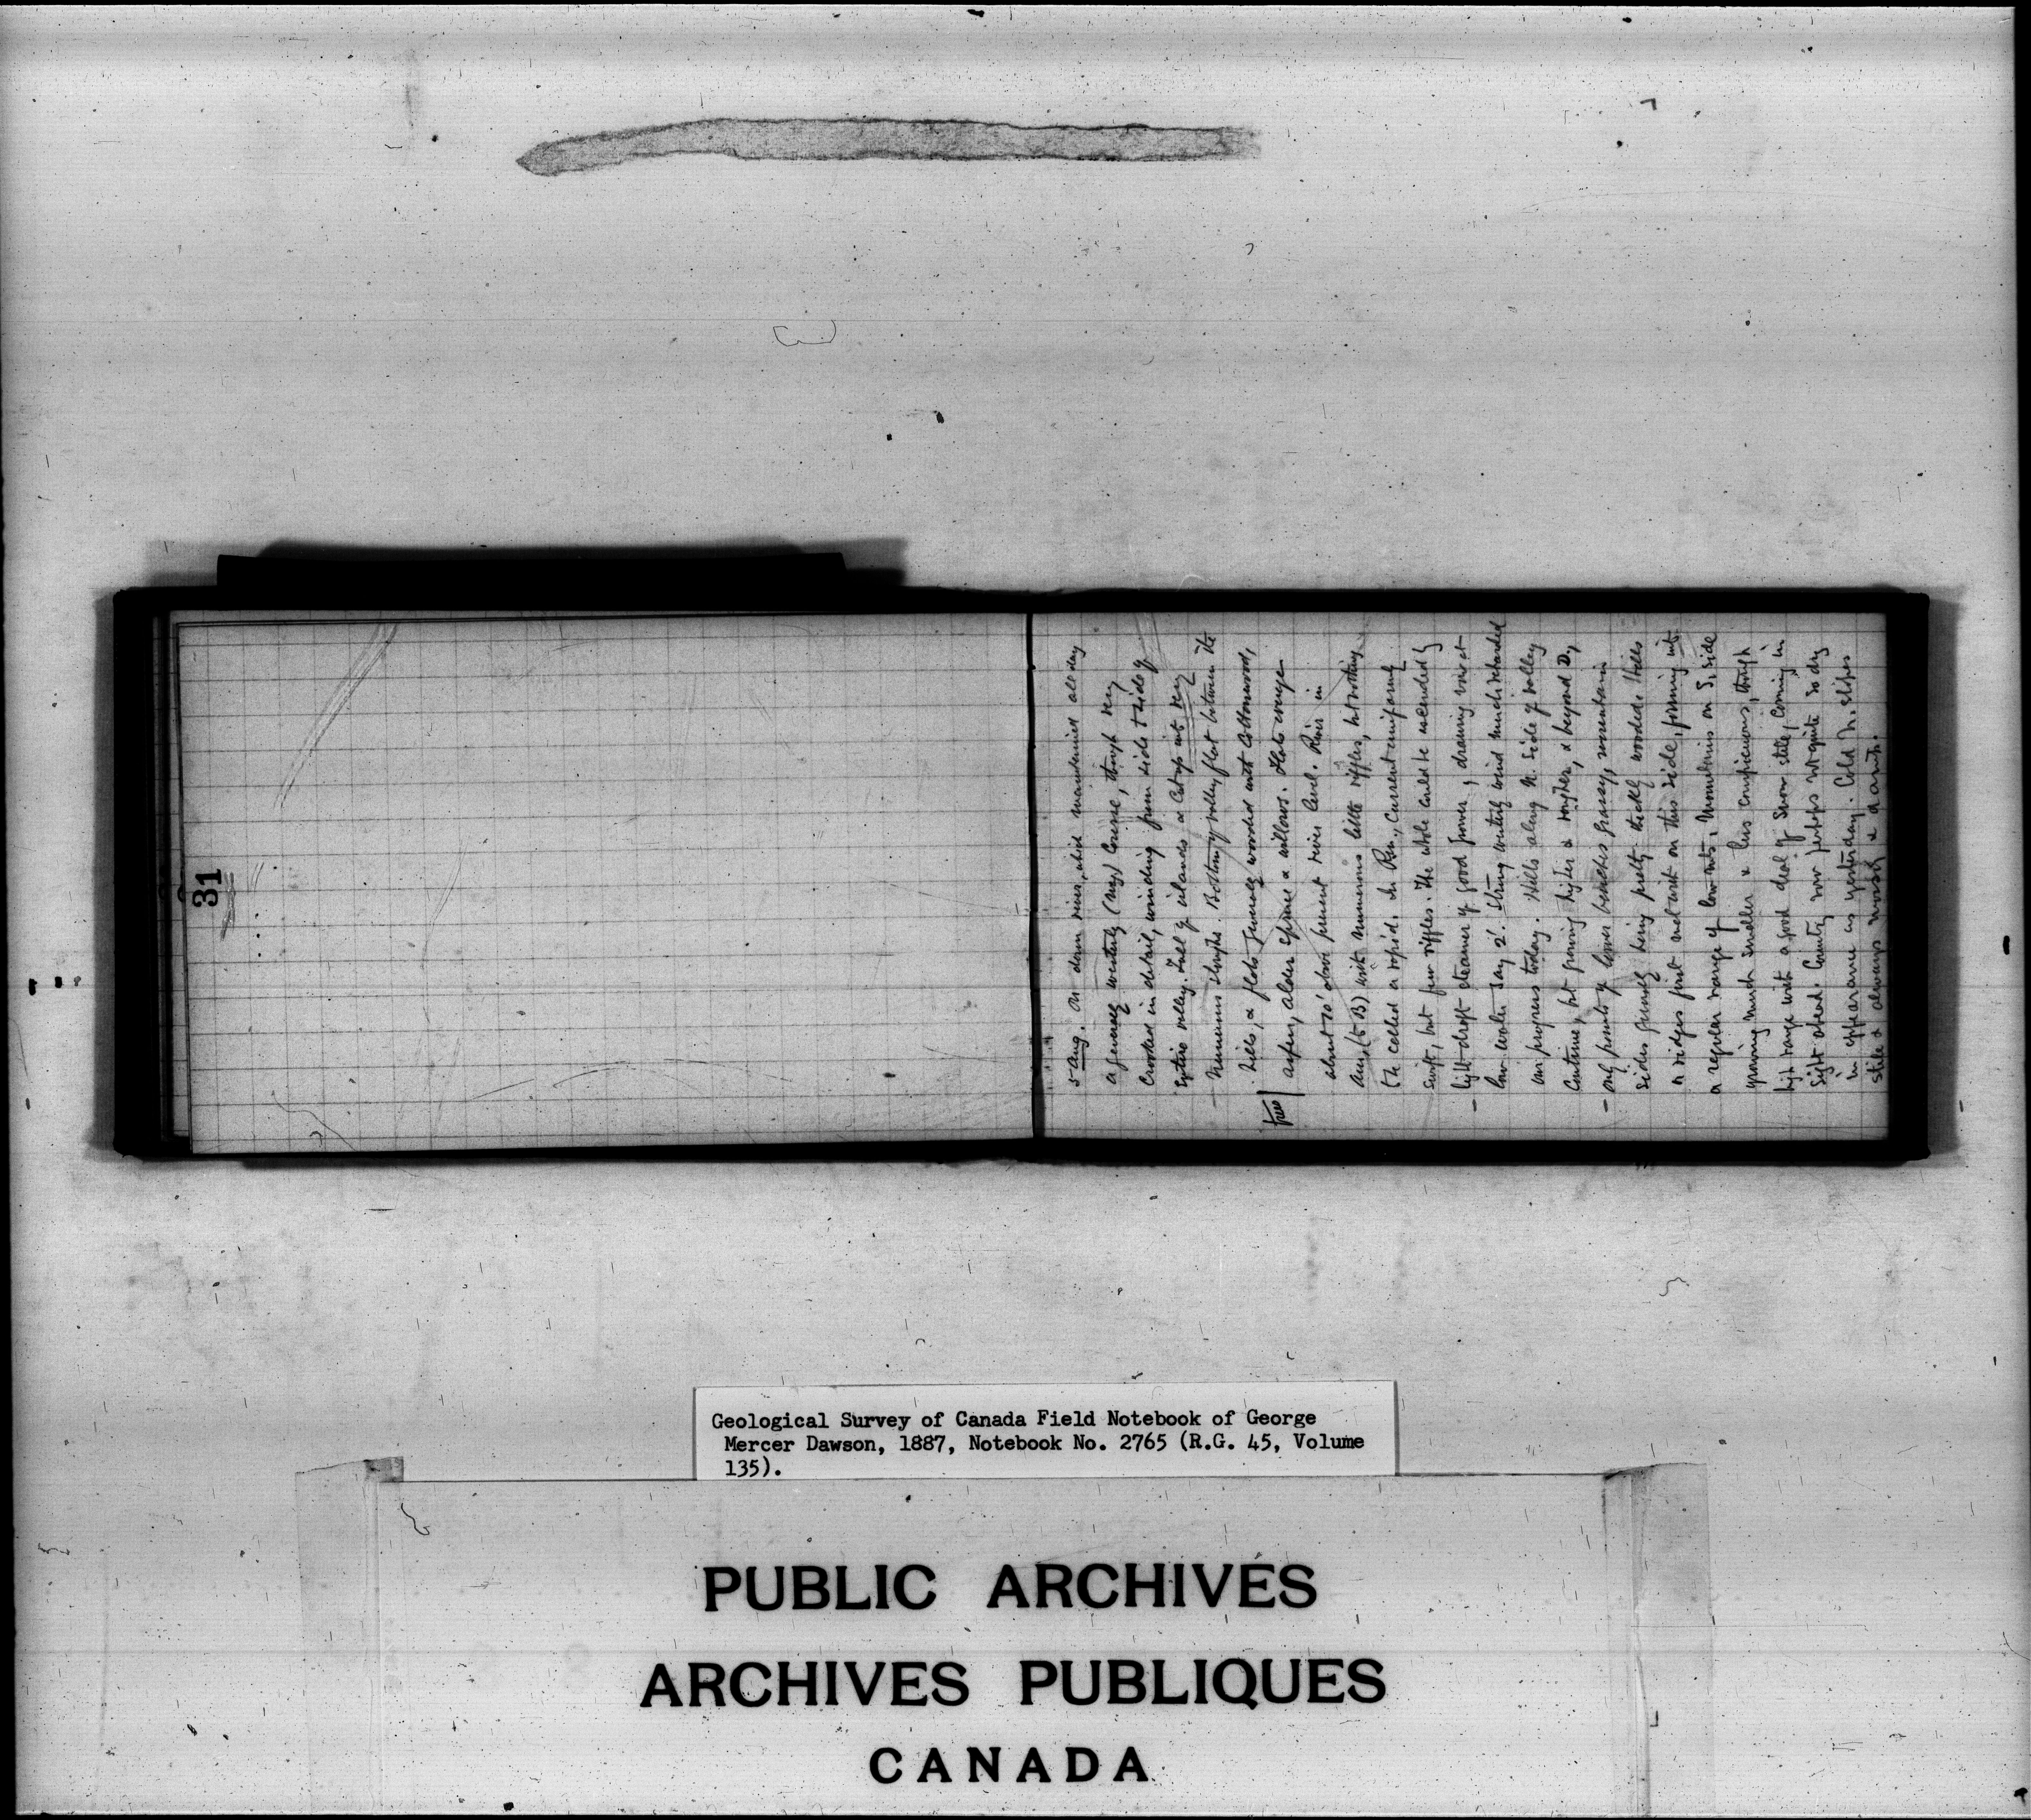 31
5 Aug. On down river, which maintained all day
a generally westerly (mag) course, though very
crooked in detail, winding from side to side of
entire valley. Full of islands & cut up into very
numerous sloughs. Bottom of valley flat between the
hills, & flats generally wooded with Cottonwood,
trees
aspen, alder spruce & willows. Flats average
about 10' above present river level. River in
(to B) with numerous little riffles, but nothing
to be called a rapid. In Pm., current uniformly
swift, but few riffles. The whole could be ascended by
light draft steamer of good power, drawing over at
low water say 2'. Strong westerly wind much retarded
our progress today. Hills along N. side of valley
continue, but growing higher & rougher, & beyond D,
only points of lower benches grassy, mountain
sides generally being pretty thickly wooded. Hills
or ridges first met with on this side, forming into
a regular range of low mts, Mountains on S. side
growing much smaller & less conspicuous, though
high range with a good deal of snow still, coming in
sight ahead. Country now perhaps not quite so dry
in appearance as yesterday. Cold N. slopes
still & always mossy & damp.
Geological Survey of Canada Field Notebook of George
Mercer Dawson, 1887, Notebook No. 2765 (R.G. 45, Volume
135).
PUBLIC ARCHIVES
ARCHIVES PUBLIQUES
CANADA